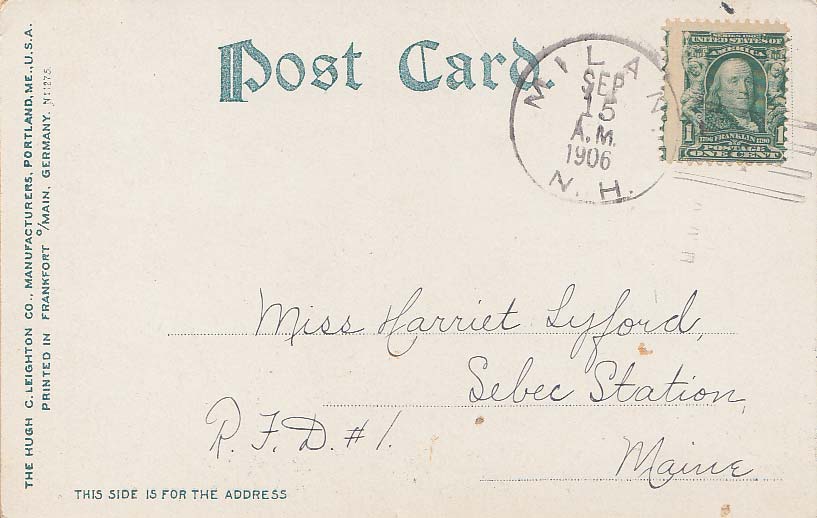 Post Card.
MILAN.
SEP
15
A.M.
1906
N.H.
SERIES 1902
UNITED STATES OF
AMERICA
1706 FRANKLIN 1790
1 POSTAGE 1
ONE CENT
Miss Harriet Lyford,
Sebec Station,
R.F.D. #1.
Maine
THIS SIDE IS FOR THE ADDRESS
THE HUGH C. LEIGHTON CO., MANUFACTURERS, PORTLAND, ME., U.S.A.
PRINTED IN FRANKFORT o/MAIN, GERMANY. N11275.